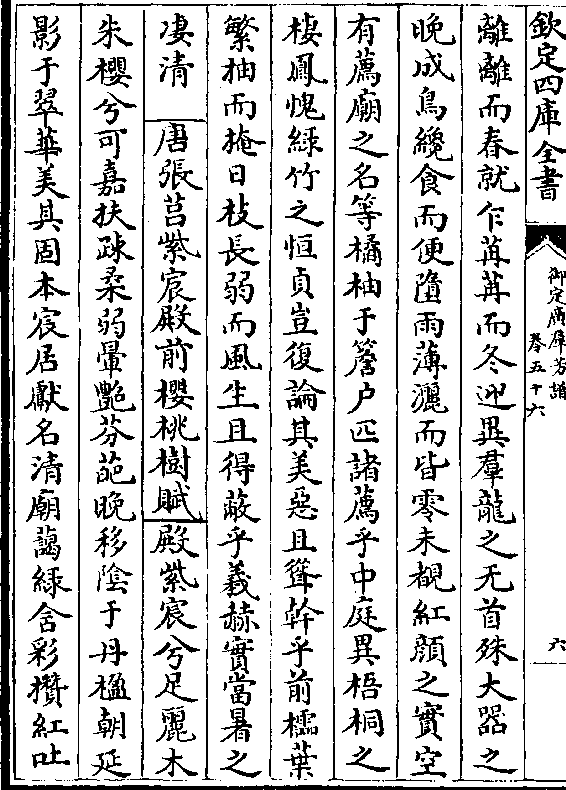 欽定四庫全書
御定廣羣芳譜
卷五十六
六
離離而春就乍苒苒而冬迎異羣龍之无首殊大器之
晚成鳥纔食而便墮雨薄灑而皆零未覩紅顔之實空
有薦廟之名等橘柚于簷户匹諸薦乎中庭異梧桐之
棲鳳愧緑竹之恒貞豈復論其美惡且聳幹乎前櫺葉
繁抽而掩日枝長弱而風生且得蔽乎義赫實當暑之
凄清 唐張莒紫宸殿前櫻桃樹賦 殿紫宸兮足麗木
朱櫻兮可嘉扶疎柔弱暈艷芬葩晚移陰于丹楹朝延
影于翠華美其固本宸居獻名清廟藹緑含彩攢紅吐